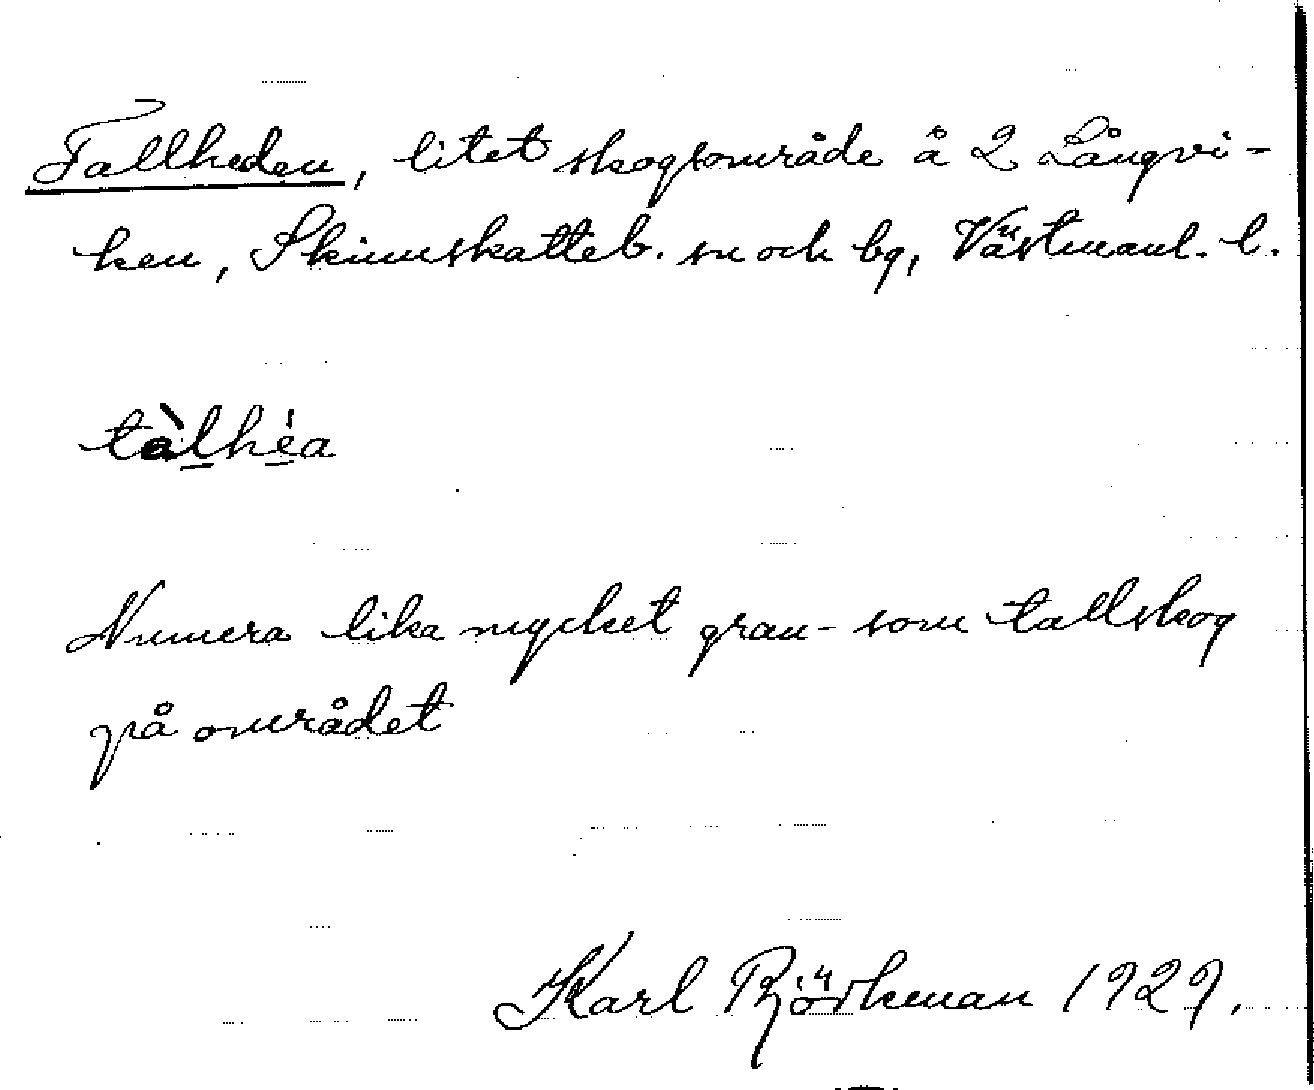 Tallheden, litet skogsområde å 2 Långvi-
ken, Skinnskatteb. sn och bg, Västmanl. l.
tàlhéa
Numera lika mycket gran- som tallskog
på området
Karl Björkman 1929.